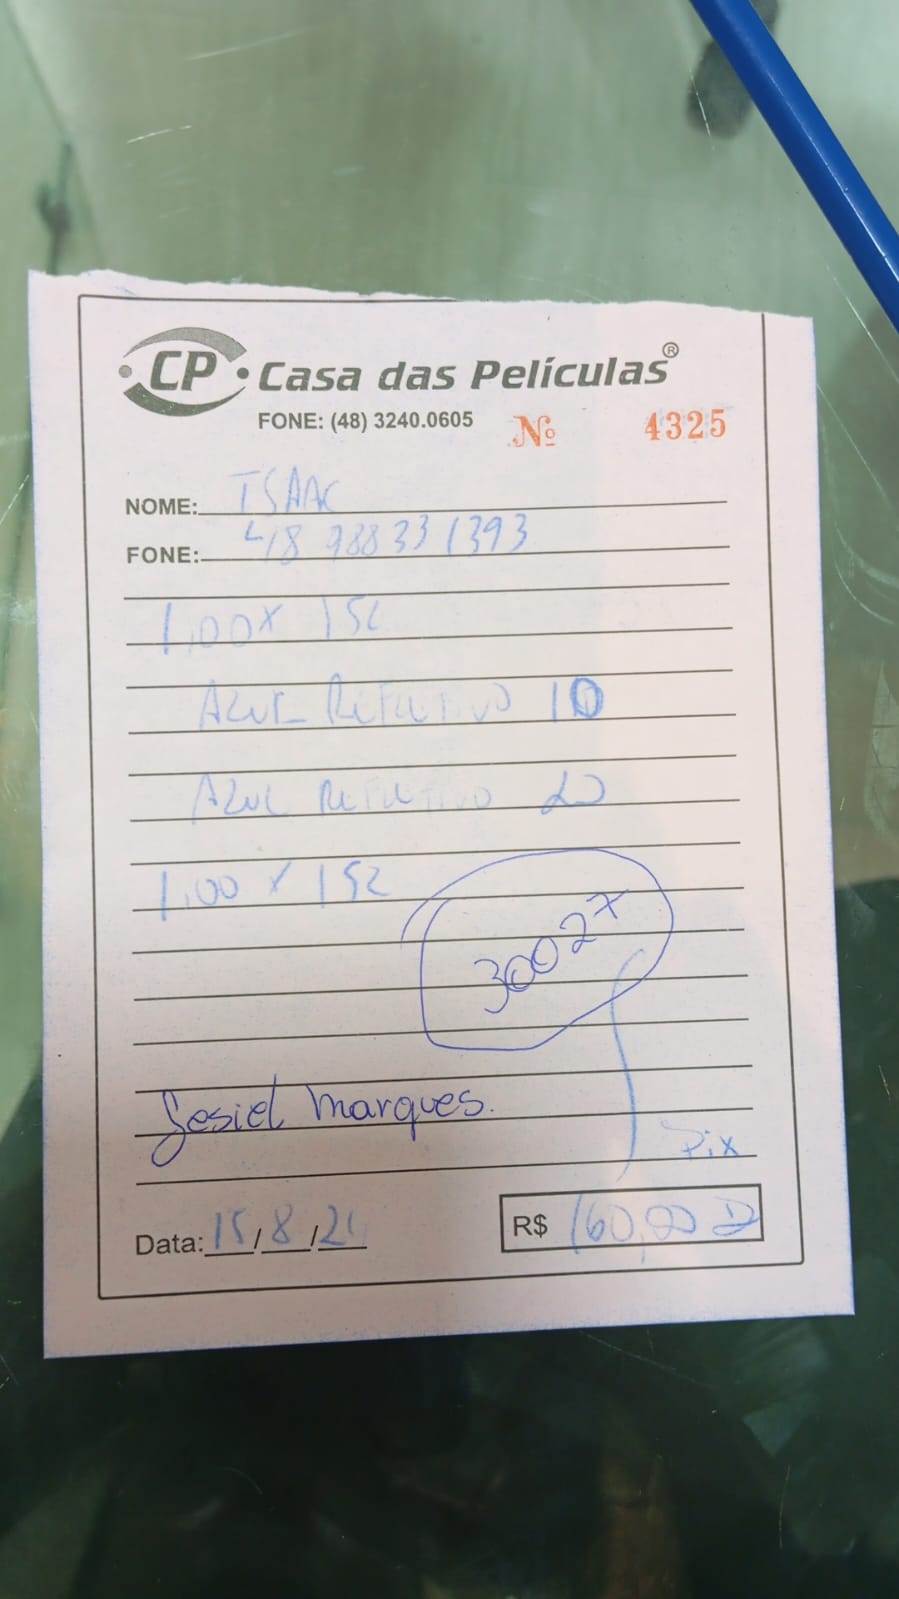 CP Casa das Películas®
FONE: (48) 3240.0605
Nº 4325
NOME: ISAAC
FONE: 48 988331393
1,00 x 152
AZUL REFLETIVO 10
AZUL REFLETIVO 20
1,00 x 152
30027
Gesiel Marques.
Pix
Data: 15/8/24
R$ 160,00